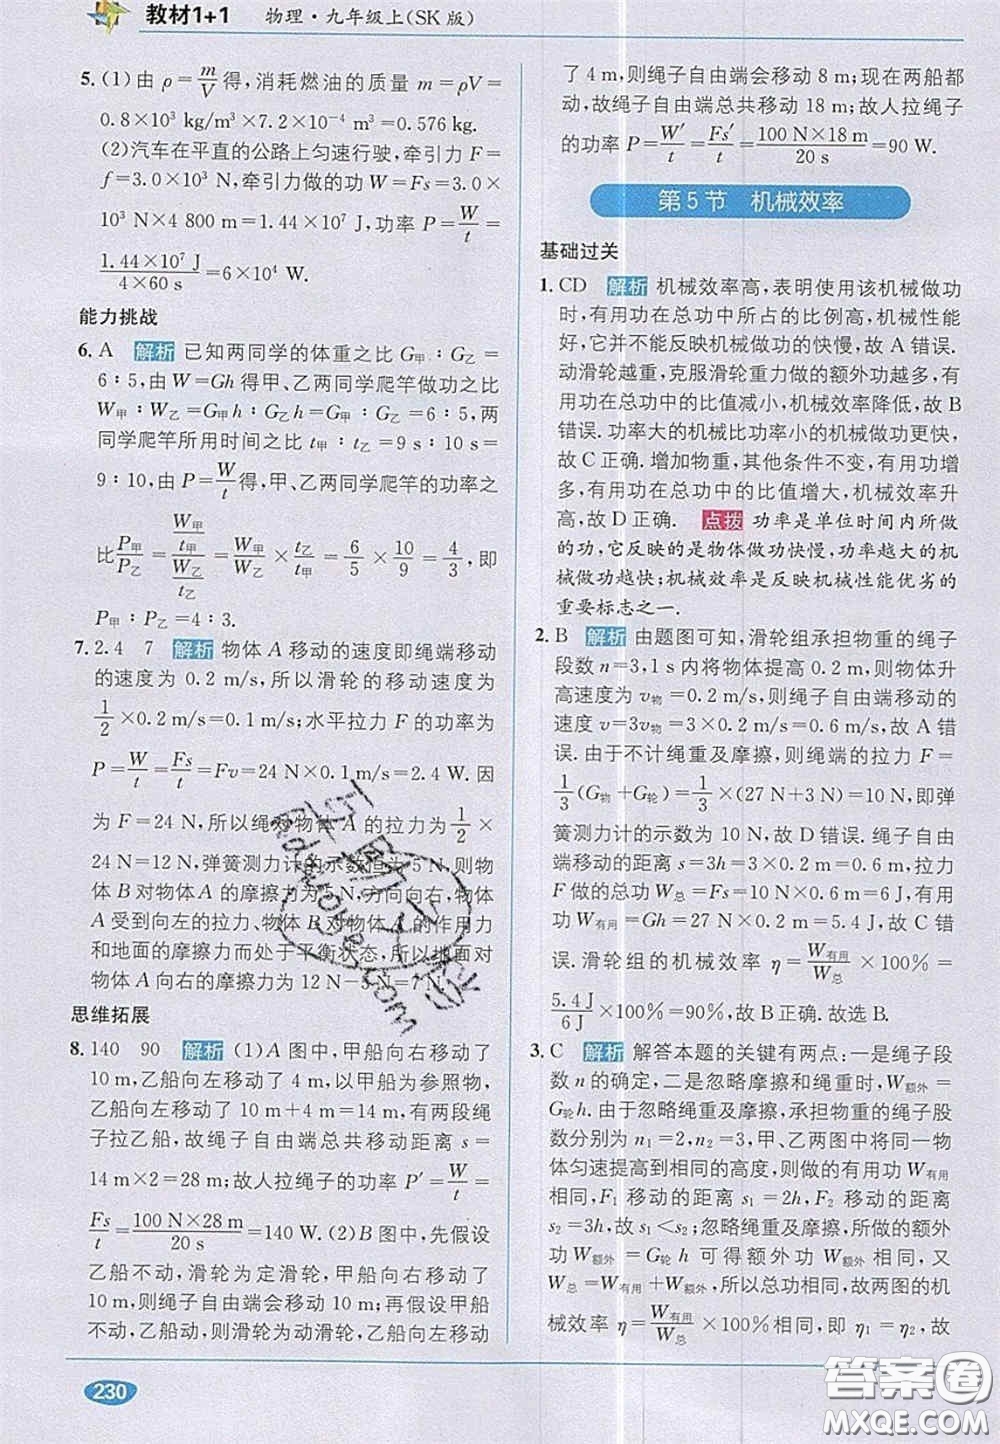 教材1+1 物理·九年级上(SK版)
5. (1)由 ρ=m/V得,消耗燃油的质量 m=ρV=
0.8×10³ kg/m³×7.2×10⁻⁴ m³=0.576 kg.
(2)汽车在平直的公路上匀速行驶,牵引力 F=
f=3.0×10³ N,牵引力做的功 W=Fs=3.0×
10³ N×4 800 m=1.44×10⁷ J,功率 P=W/t=
1.44×10⁷ J/(4×60 s)=6×10⁴ W.
能力挑战
6. A 解析 已知两同学的体重之比 G甲∶G乙=
6∶5,由 W=Gh得甲、乙两同学爬竿做功之比
W甲∶W乙=G甲h∶G乙h=G甲∶G乙=6∶5,两
同学爬竿所用时间之比 t甲∶t乙=9 s∶10 s=
9∶10,由 P=W/t得,甲、乙两同学爬竿的功率之
比P甲/P乙=(W甲/t甲)/(W乙/t乙)=W甲/W乙×t乙/t甲=6/5×10/9=4/3,即
P甲∶P乙=4∶3.
7. 2.4 7 解析 物体 A 移动的速度即绳端移动
的速度为 0.2 m/s,所以滑轮的移动速度为
1/2×0.2 m/s=0.1 m/s;水平拉力 F 的功率为
P=W/t=Fs/t=Fv=24 N×0.1 m/s=2.4 W. 因
为 F=24 N,所以绳对物体 A 的拉力为1/2×
24 N=12 N,弹簧测力计的示数恒为 5 N,则物
体 B 对物体A 的摩擦力为5 N,方向向右,物体
A 受到向左的拉力、物体 B 对物体 A 的作用力
和地面的摩擦力而处于平衡状态,所以地面对
物体 A 向右的摩擦力为 12 N-5 N=7 N.
思维拓展
8. 140 90 解析 (1)A 图中,甲船向右移动了
10 m,乙船向左移动了 4 m,以甲船为参照物,
乙船向左移动了 10 m+4 m=14 m,有两段绳
子拉乙船,故绳子自由端总共移动距离 s=
14 m×2=28 m;故人拉绳子的功率 P′=W/t=
Fs/t=100 N×28 m/20 s=140 W. (2)B 图中,先假设
乙船不动,滑轮为定滑轮,甲船向右移动了
10 m,则绳子自由端会移动 10 m;再假设甲船
不动,乙船动,则滑轮为动滑轮,乙船向左移动
了 4 m,则绳子自由端会移动 8 m;现在两船都
动,故绳子自由端总共移动 18 m;故人拉绳子
的功率 P=W′/t=Fs′/t=100 N×18 m/20 s=90 W.
第 5 节 机械效率
基础过关
1. CD 解析 机械效率高,表明使用该机械做功
时,有用功在总功中所占的比例高,机械性能
好,它并不能反映机械做功的快慢,故 A 错误.
动滑轮越重,克服滑轮重力做的额外功越多,有
用功在总功中的比值减小,机械效率降低,故 B
错误. 功率大的机械比功率小的机械做功更快,
故 C 正确. 增加物重,其他条件不变,有用功增
多,有用功在总功中的比值增大,机械效率升
高,故 D 正确. 点拨 功率是单位时间内所做
的功,它反映的是物体做功快慢,功率越大的机
械做功越快;机械效率是反映机械性能优劣的
重要标志之一.
2. B 解析 由题图可知,滑轮组承担物重的绳子
段数 n=3,1 s 内将物体提高 0.2 m,则物体升
高速度为 v物=0.2 m/s,则绳子自由端移动的
速度 v=3v物=3×0.2 m/s=0.6 m/s,故 A 错
误. 由于不计绳重及摩擦,则绳端的拉力 F=
1/3(G物+G轮)=1/3×(27 N+3 N)=10 N,即弹
簧测力计的示数为 10 N,故 D 错误. 绳子自由
端移动的距离 s=3h=3×0.2 m=0.6 m,拉力
F 做的总功W总=Fs=10 N×0.6 m=6 J,有用
功 W有用=Gh=27 N×0.2 m=5.4 J,故 C 错
误. 滑轮组的机械效率 η=W有用/W总×100%=
5.4 J/6 J×100%=90%,故 B 正确. 故选 B.
3. C 解析 解答本题的关键有两点:一是绳子段
数 n 的确定,二是忽略摩擦和绳重时,W额外
=G轮h. 由于忽略绳重及摩擦,承担物重的绳子股
数分别为 n₁=2,n₂=3,甲、乙两图中将同一物
体匀速提升到相同的高度,则做的有用功 W有用
相同,F₁ 移动的距离 s₁=2h,F₂ 移动的距离
s₂=3h,故 s₁<s₂;忽略绳重及摩擦,所做的额外
功 W额外=G轮 h 可得额外功 W额外相同,又
W总=W有用+W额外,所以总功相同,故两图的机
械效率 η=W有用/W总×100%相同,即 η₁=η₂,故
230
答案圈
MXQE.COM